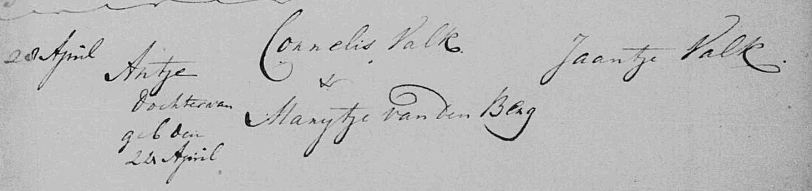 28 April
Antje
Dochter van
geb den
22 April
Cornelis Valk.
&
Marytje van den Berg
Jaantje Valk.